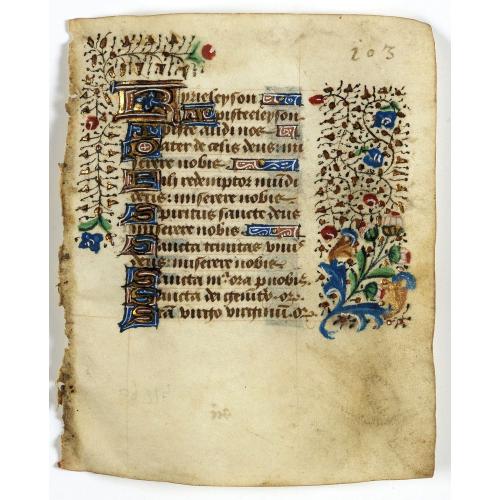 103
Kyrieleyson
Xpisteleyson
Xpiste audi nos
Pater de celis deus mi
serere nobis
Fili redemptor mundi
deus miserere nobis
Spiritus sancte deus
miserere nobis
Sancta trinitas unus
deus miserere nobis
Sancta m͛ ora p nobis
Sancta dei genitͥx or͛
Sca virgo virginũ or͛